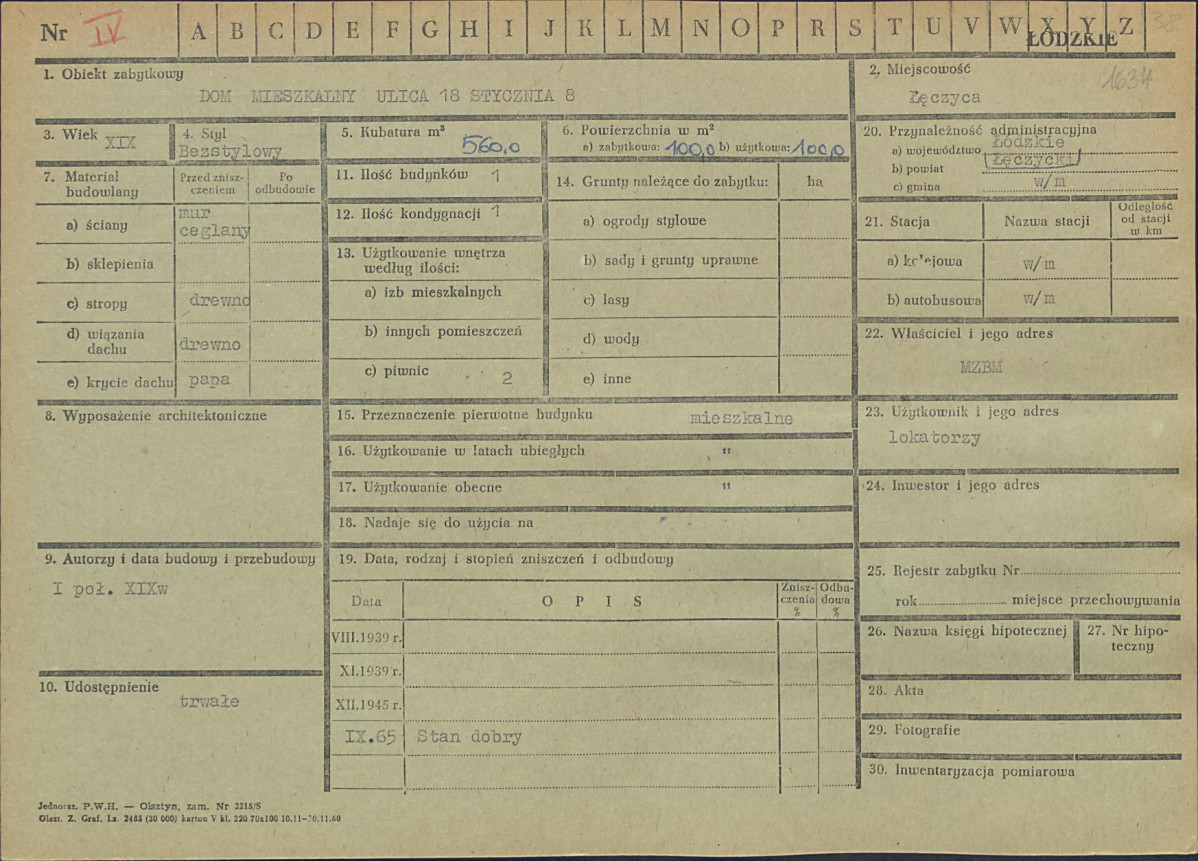 Nr IV A B C D E F G H I J K L M N O P R S T U V W X Y Z 38
ŁÓDZKIE
1. Obiekt zabytkowy
DOM MIESZKALNY ULICA 18 STYCZNIA 8
2. Miejscowość
1634
Łęczyca
3. Wiek XIX
4. Styl
Bezstylowy
5. Kubatura m³
560,0
6. Powierzchnia w m²
a) zabytkowa: 100,0 b) użytkowa: 100,0
20. Przynależność administracyjna
a) województwo Łódzkie
b) powiat Łęczycki
c) gmina w/m
7. Materiał budowlany
Przed znisz-
czeniem
Po
odbudowie
a) ściany mur
ceglany
b) sklepienia
c) stropy drewno
d) wiązania
dachu drewno
e) krycie dachu papa
11. Ilość budynków 1
12. Ilość kondygnacji 1
13. Użytkowanie wnętrza
według ilości:
a) izb mieszkalnych
b) innych pomieszczeń
c) piwnic 2
14. Grunty należące do zabytku: ha
a) ogrody stylowe
b) sady i grunty uprawne
c) lasy
d) wody
e) inne
21. Stacja Nazwa stacji
Odległość
od stacji
w km
a) kolejowa w/m
b) autobusowa w/m
22. Właściciel i jego adres
MZBM
8. Wyposażenie architektoniczne
15. Przeznaczenie pierwotne budynku mieszkalne
16. Użytkowanie w latach ubiegłych "
17. Użytkowanie obecne "
18. Nadaje się do użycia na
23. Użytkownik i jego adres
lokatorzy
24. Inwestor i jego adres
9. Autorzy i data budowy i przebudowy
I poł. XIXw
10. Udostępnienie
trwałe
19. Data, rodzaj i stopień zniszczeń i odbudowy
Data OPIS
Znisz-
czenia
%
Odbu-
dowa
%
VIII.1939 r.
XI.1939 r.
XII.1945 r.
IX.65 Stan dobry
25. Rejestr zabytku Nr
rok miejsce przechowywania
26. Nazwa księgi hipotecznej
27. Nr hipo-
teczny
28. Akta
29. Fotografie
30. Inwentaryzacja pomiarowa
Jednoraz. P.W.H. — Olsztyn, zam. Nr 3215/S
Olszt. Z. Graf. Lz. 2485 (30 000) karton V kl. 220 70x100 10.11—30.11.60